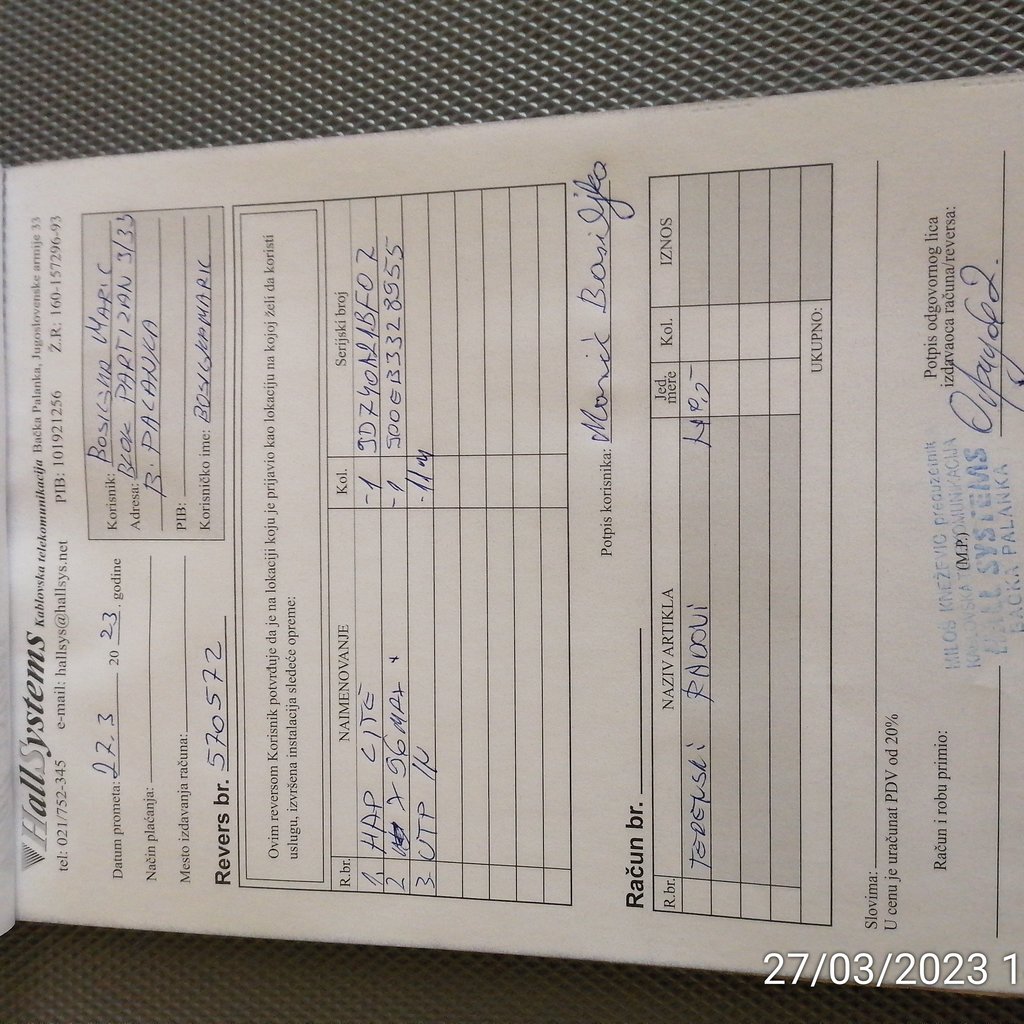 HallSystems Kablovska telekomunikacija Bačka Palanka, Jugoslovenske armije 33
tel: 021/752-345 e-mail: hallsys@hallsys.net PIB: 101921256 Ž.R: 160-157296-93
Datum prometa: 27.3 2023. godine
Način plaćanja:
Mesto izdavanja računa:
Revers br. 570572
Korisnik: BOSILJKA MARIĆ
Adresa: BLOK PARTIZAN 3/33
B. PALANKA
PIB:
Korisničko ime: BOSILJKAMARIC
Ovim reversom Korisnik potvrđuje da je na lokaciji koju je prijavio kao lokaciju na kojoj želi da koristi
uslugu, izvršena instalacija sledeće opreme:
R.br. NAIMENOVANJE Kol. Serijski broj
1. HAP LITE -1
2 -1
3. UTP -11m
Potpis korisnika: Marić Bosiljka
Račun br.
R.br. NAZIV ARTIKLA Jed. mere Kol. IZNOS
TERENSKI RADOVI
UKUPNO:
Slovima:
U cenu je uračunat PDV od 20%
Račun i robu primio:
(M.P.)
Potpis odgovornog lica
izdavaoca računa/reversa:
MILOŠ KNEŽEVIĆ preduzetnik
KABLOVSKA TELEKOMUNIKACIJA
HALL SYSTEMS
BAČKA PALANKA
27/03/2023 1